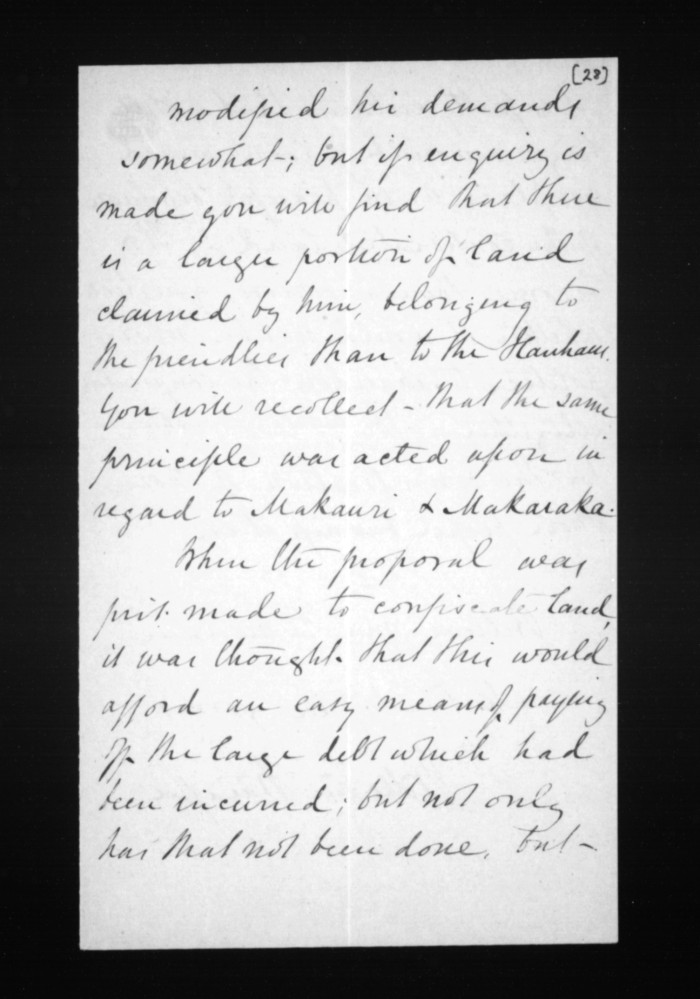 [28]
modified his demands
somewhat; but if enquiry is
made you will find that there
is a larger portion of land
claimed by him, belonging to
the friendlies than to the Hauhaus.
You will recollect - that the same
principle was acted upon in
regard to Makauri & Makaraka.
When the proposal was
first made to confiscate land,
it was thought that this would
afford an easy means of paying
off the large debt which had
been incurred; but not only
has that not been done, but -